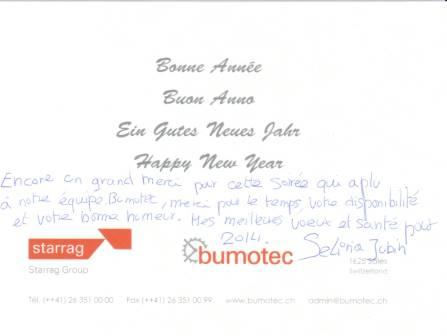 Bonne Année
Buon Anno
Ein Gutes Neues Jahr
Happy New Year
Encore un grand merci par cette soirée qui a plu
à notre équipe Bumotec, merci par le temps, votre disponibilité
et votre bonne humeur. Mes meilleurs voeux et santé pour
2014.
starrag
bumotec
Starrag Group
1625 Sâles
Switzerland
Tél. (++41) 26 351 00 00 Fax (++41) 26 351 00 99 www.bumotec.ch admin@bumotec.ch